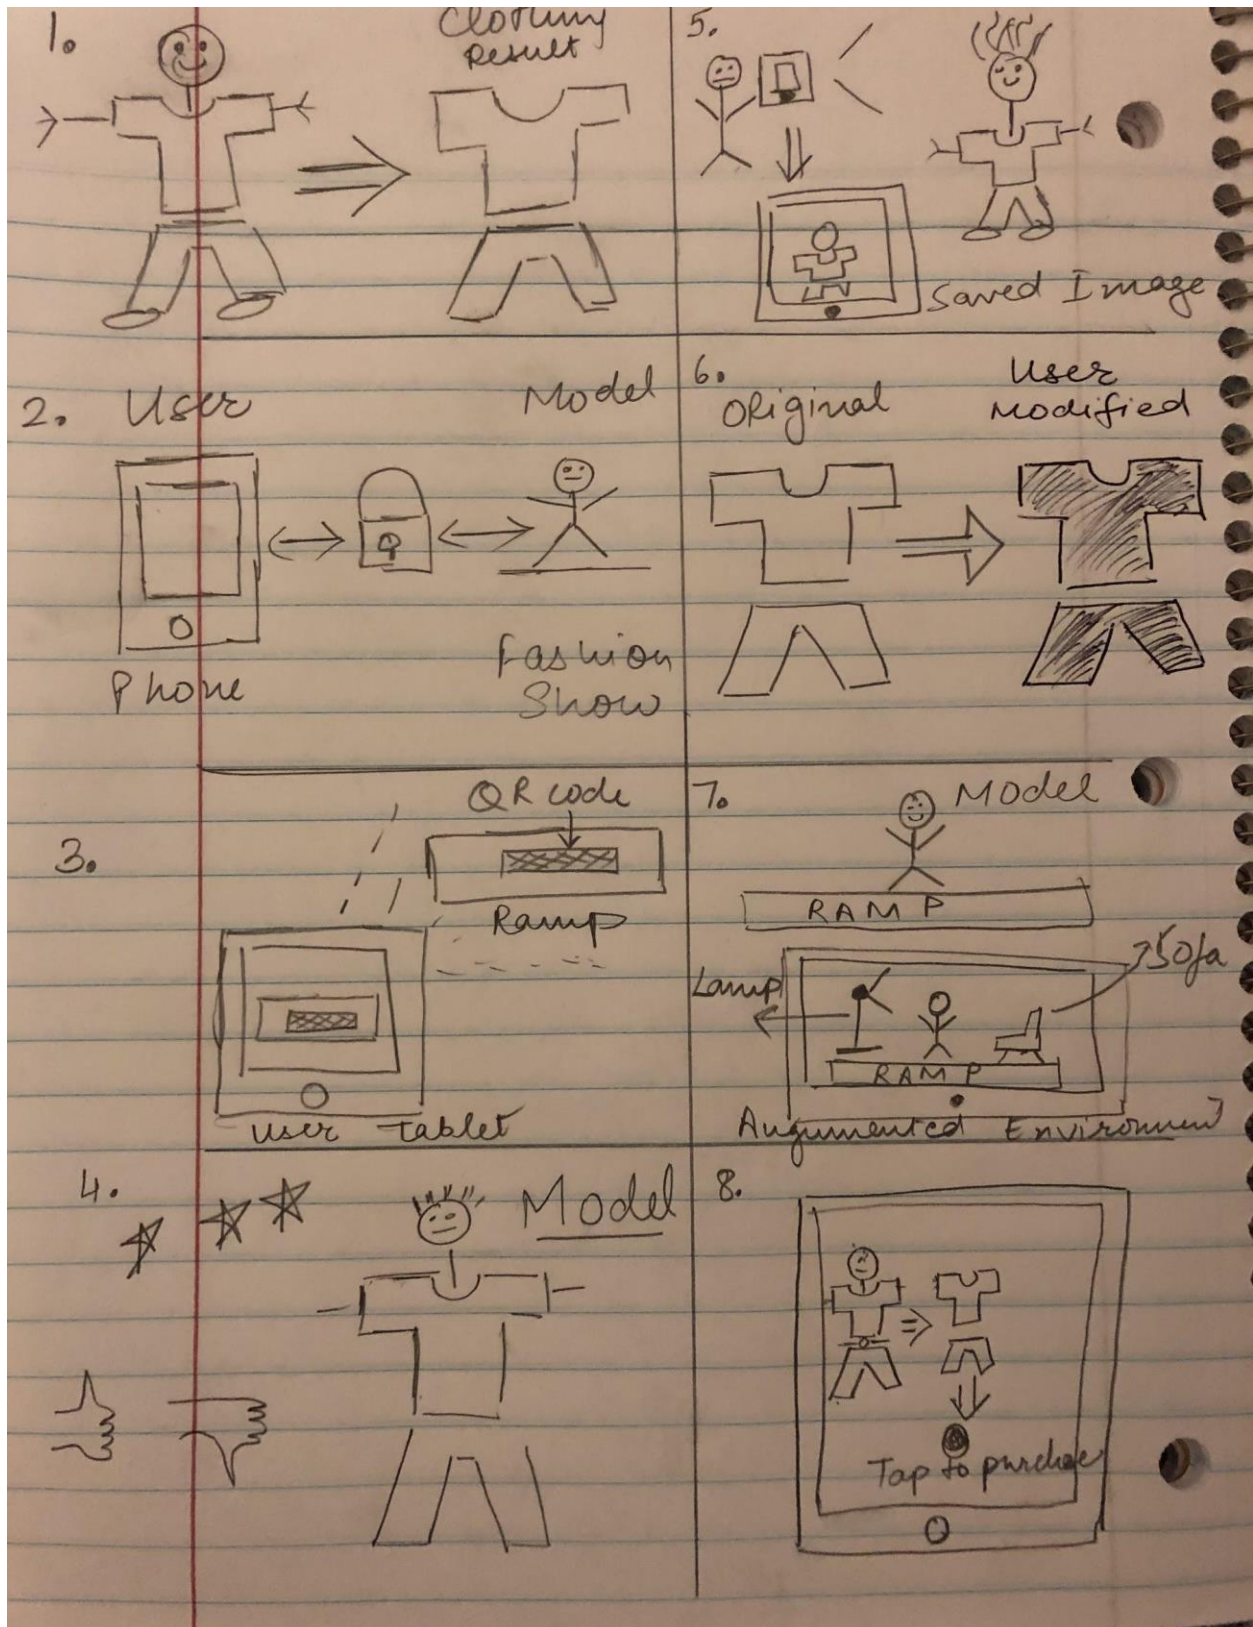 1.
Clothing
Result
2. User
Model
Phone
Fashion
Show
3.
QR code
Ramp
User tablet
4.
Model
5.
Saved Image
6.
Original
User
Modified
7.
Model
RAMP
Lamp
Sofa
RAMP
Augumented Environment
8.
Tap to purchase